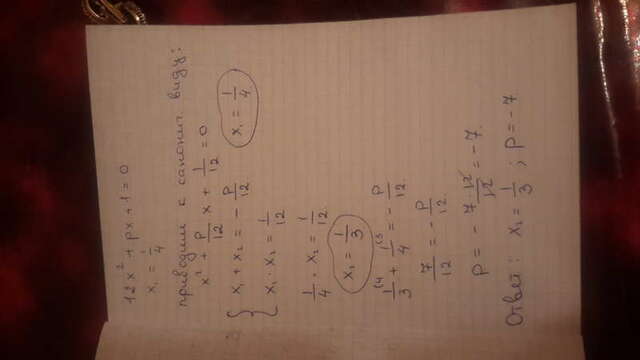 12x² + px + 1 = 0
x₁ = 1/4
приводим к канонич. виду:
x² + p/12 x + 1/12 = 0
x₁ = 1/4
{ x₁ + x₂ = - p/12
x₁ · x₂ = 1/12
1/4 · x₂ = 1/12
x₂ = 1/3
1/3 + 1/4 = - p/12
7/12 = - p/12
p = - 7·12/12 = -7
Ответ: x₂ = 1/3 ; p = -7